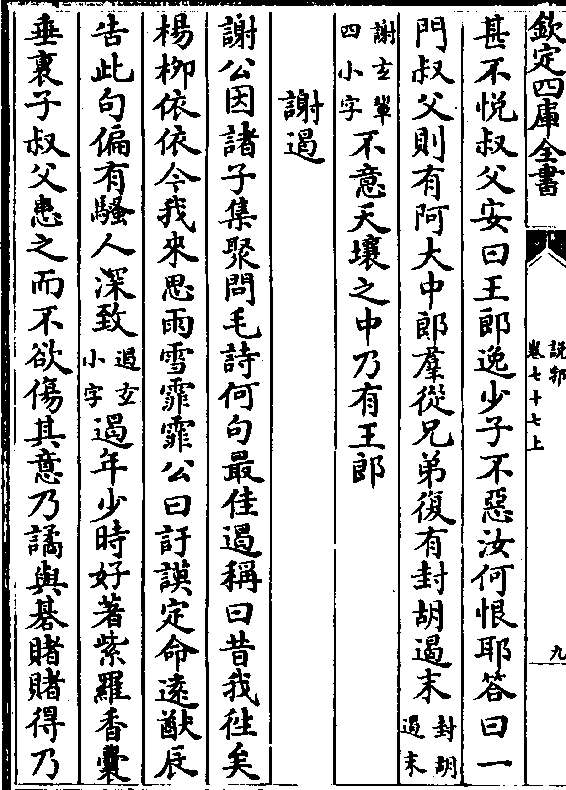 欽定四庫全書
說郛
卷七十七上
九
甚不悅叔父安曰王郎逸少子不惡汝何恨耶答曰一
門叔父則有阿大中郎羣從兄弟復有封胡遏末封胡遏末
謝玄輩四小字不意天壤之中乃有王郎
謝遏
謝公因諸子集聚問毛詩何句最佳遏稱曰昔我徃矣
楊柳依依今我來思雨雪霏霏公曰訏謨定命遠猷辰
告此句偏有騷人深致遏玄小字遏年少時好著紫羅香囊
垂裏子叔父患之而不欲傷其意乃譎與棊賭賭得乃